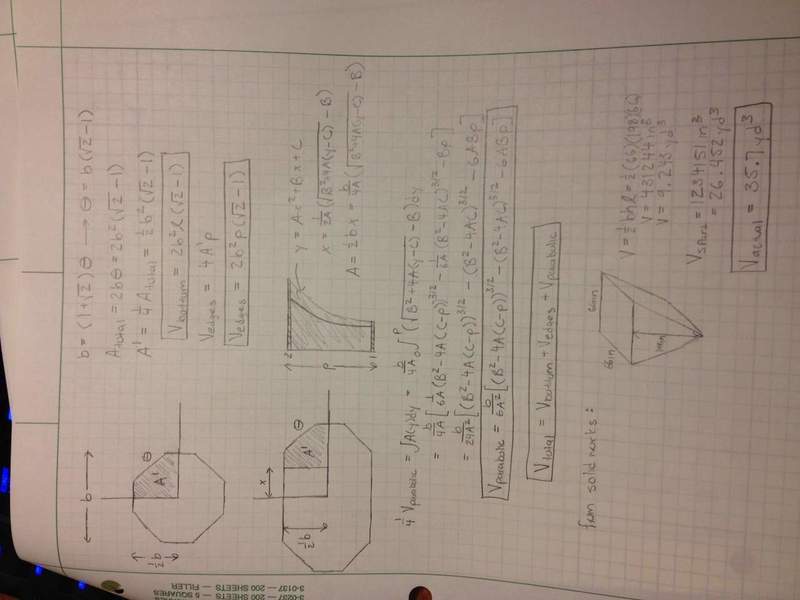 b = (1+√2)θ → θ = b(√2-1)
A total = 2bθ = 2b²(√2-1)
A' = ¼ A total = ½b²(√2-1)
V bottom = 2b²l(√2-1)
V edges = 4A'p
V edges = 2b²p(√2-1)
b
½b
A'
θ
2
p
1
y = Ax²+Bx+C
x = 1/2A (√B²+4A(y-C) - B)
A = ½bx = b/4A (√B²+4A(y-C) - B)
x
½b
A'
θ
¼ V parabolic = ∫A(y)dy = b/4A ₀∫ᵖ (√B²+4A(y-C) - B)dy
= b/4A [1/6A (B²-4A(C-p))^3/2 - 1/6A (B²-4AC)^3/2 - Bp]
= b/24A² [(B²-4A(C-p))^3/2 - (B²-4AC)^3/2 - 6ABp]
V parabolic = b/6A² [(B²-4A(C-p))^3/2 - (B²-4AC)^3/2 - 6ABp]
V total = V bottom + V edges + V parabolic
from solid works:
66in
V = ½bhl = ½(66)(198)(66)
V = 431244 in³
V = 9.243 yd³
V spare = 1234151 in³
= 26.452 yd³
V actual = 35.7 yd³
3-0137 — 200 SHEETS — FILLER
3-0237 — 200 SHEETS — 5 SQUARES